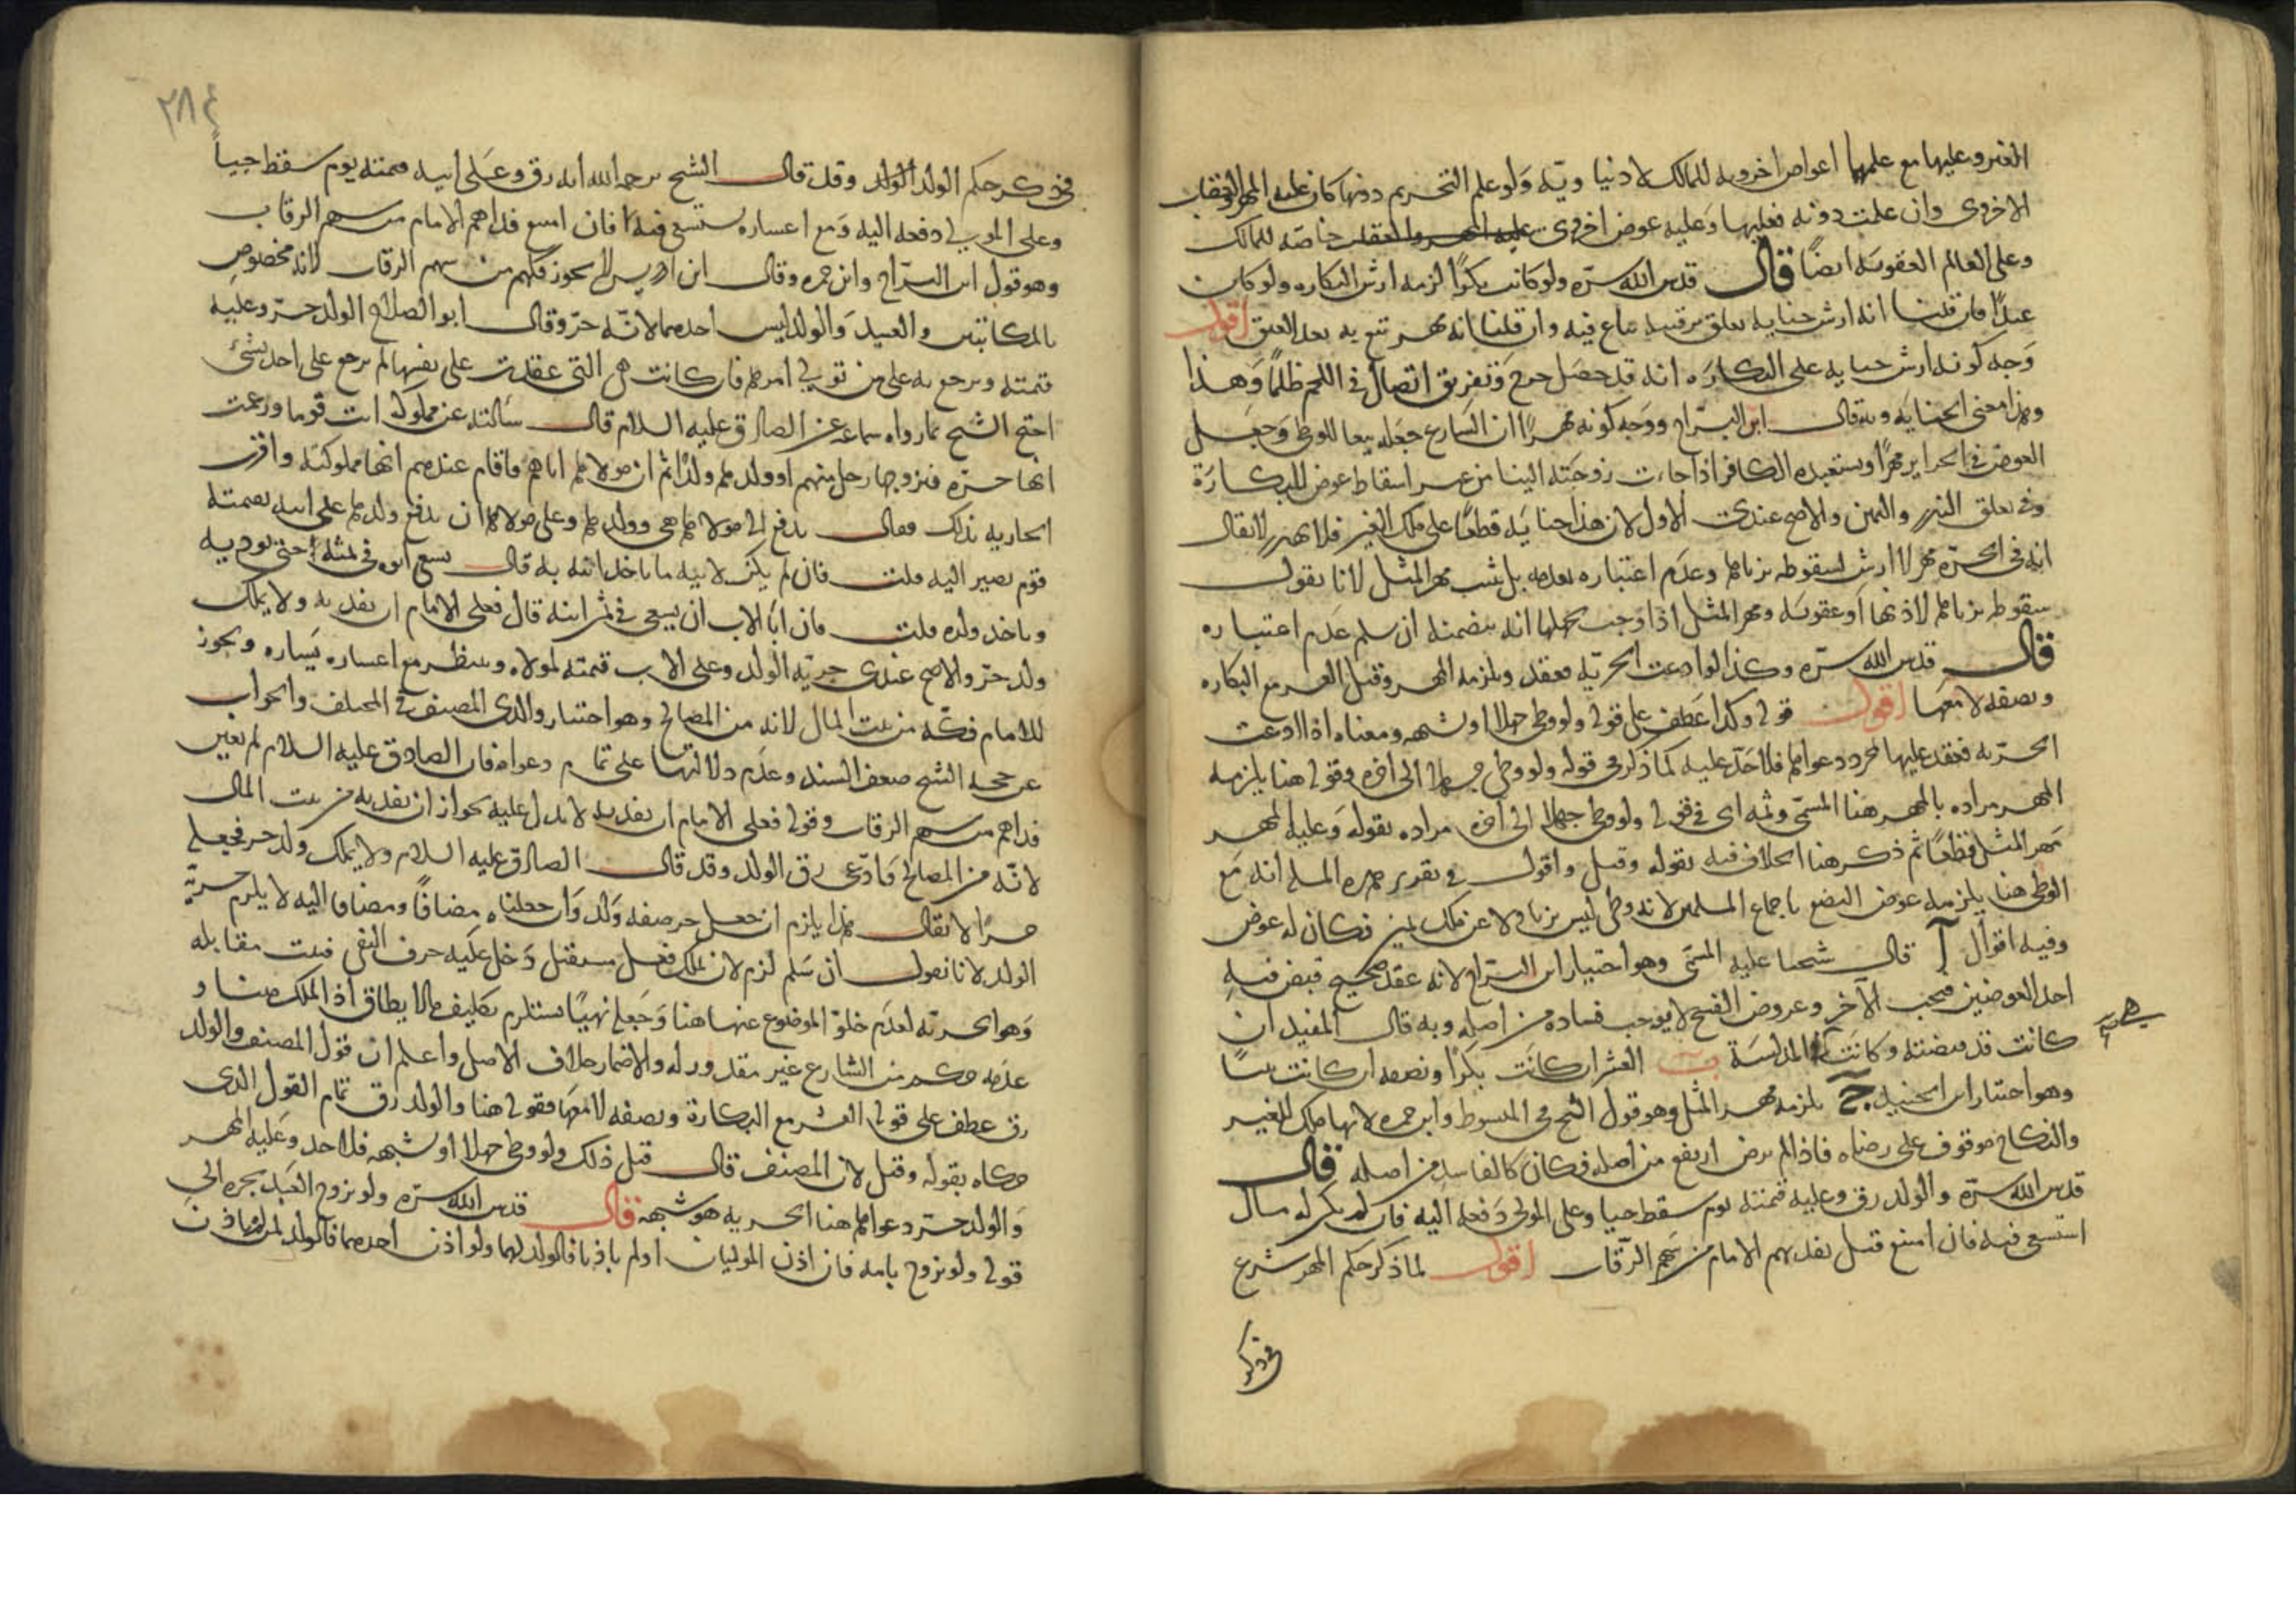 الغير وعليها مع علمهما اعواض اخروية للمالك لا دنياوية ولو علم التحريم دونها كان عليه المهر والعقاب
الاخروى وان علمت دونه فعليها وعليه عوض اخروى خاصة للمالك
وعلى العالم العقوبة ايضاً قال قدس الله سره ولو كانت بكراً لزمه ارش البكاره ولو كان
عبداً فان قلنا انه ارش جناية تعلق برقبته يباع فيه وان قلنا انه مهر تتبع به بعد العتق اقول
وجه كونه ارش جناية على البكاره انه قد حصل جرح وتفريق اتصال في اللحم ظلماً وهذا
وهذا معنى الجناية وبه قال ابن البراج ووجه كونه مهراً ان الشارع جعله تبعا للوطى وجعل
العوض في الحراير مهراً ويستعيده الكافر اذا جاءت زوجته الينا من غير اسقاط عوض للبكارة
وفي تعلق النذر واليمين والاصح عندى الاول لان هذا جناية قطعاً على ملك الغير فلا يهدر لا يقال
انه في الحرة مهر لا ارش لسقوطه بزناها وعدم اعتباره بعدمه بل يثبت مهر المثل لانا نقول
سقوطه بزناها لاذنها او عقوبة ومهر المثل اذا وجب بجهلها انه بضمنه ان سلم عدم اعتباره
قال قدس الله سره وكذا لو ادعت الحرية فعقد ويلزمه المهر وقيل العشر مع البكاره
ونصفه لا معها اقول قوله وكذا عطف على قوله ولو وطى جهلا او لشبهه ومعناه اذا ادعت
الحرية فعقد عليها لمجرد دعواها فلا حد عليه كما ذكر في قوله ولو وطى جهلا الى اخره وقوله هنا يلزمه
المهر مراده بالمهر هنا المسمى وثمه اى في قوله ولو وطى جهلا الى اخره مراده بقوله وعليه المهر
مهر المثل قطعاً ثم ذكر هنا الخلاف فيه بقوله وقيل واقول في تقرير هذه المسلة انه مع
الوطى هنا يلزمه عوض البضع باجماع المسلمين لانه وطى ليس بزنا ولا عن ملك يمين فكان له عوض
وفيه اقوال آ قال شيخنا عليه المسمى وهو اختيار ابن البراج لانه عقد صحيح قبض فيه
احد العوضين فيجب الآخر وعروض الفسخ لا يوجب فساده من اصله وبه قال المفيد ان
كانت قد قبضته وكانت المدلسة ب العشر ان كانت بكراً ونصفه ان كانت ثيباً
وهو اختيار ابن الجنيد ج يلزمه مهر المثل وهو قول الشيخ في المبسوط وابن حمزه لانها ملك للغير
والنكاح موقوف على رضاه فاذا لم يرض ارتفع من اصله فكان كالفاسد من اصله قال
قدس الله سره والولد رق وعليه قيمته يوم سقط حيا وعلى المولى دفعه اليه فان لم يكن له مال
استسعى فيه فان امتنع قيل يفديهم الامام من سهم الرقاب اقول لما ذكر حكم المهر شرع
في ذكر
٢٨٤
في ذكر حكم الولد الولد وقد قال الشيخ رحمه الله انه رق وعلى ابيه قيمته يوم سقط حياً
وعلى المولى دفعه اليه ومع اعساره يستسعى فيه فان امتنع فداهم الامام من سهم الرقاب
وهو قول ابن البراج وابن حمزه وقال ابن ادريس لا يجوز فكهم من سهم الرقاب لانه مخصوص
بالمكاتبين والعبيد والولد ليس احدهما لانه حر وقال ابو الصلاح الولد حر وعليه
قيمته ويرجع به على من تولى امرها فان كانت هى التى عقدت على نفسها لم يرجع على احد بشئ
احتج الشيخ بما رواه سماعه عن الصادق عليه السلام قال سألته عن مملوكة اتت قوما وزعمت
انها حرة فتزوجها رجل منهم اوولدها ولدا ثم ان مولاها اتاهم فاقام عندهم انها مملوكته واقرت
الجاريه بذلك فقال يدفع الى مولاها هى وولدها وعلى مولاها ان يدفع ولدها على ابيه بقيمته
يوم يصير اليه قلت فان لم يكن لابيه ما ياخذ ابنه به قال يسعى ابوه في ثمنه حتى يوديه
وياخذ ولده قلت فان ابا الاب ان يسعى في ثمن ابنه قال فعلى الامام ان يفديه ولا يملك
ولد حر والاصح عندى حرية الولد وعلى الاب قيمته لمولاه وينظر مع اعساره يساره ويجوز
للامام فكه من بيت المال لانه من المصالح وهو اختيار والدى المصنف في المختلف والجواب
عن حجة الشيخ ضعف السند وعدم دلالتها على تمام دعواه فان الصادق عليه السلام لم يعين
فداهم من سهم الرقاب وقوله فعلى الامام ان يفديه لا يدل عليه لجواز ان يفديه من بيت المال
لانه من المصالح وادعى رق الولد وقد قال الصادق عليه السلام ولا يملك ولد حر فجعله
حراً لا يقال هذا يلزم ان جعل حر صفة ولد وان جعلناه مضافاً ومضافا اليه لا يلزم حرية
الولد لانا نقول ان سلم لزم لان يملك فعل مستقبل دخل عليه حرف النفى فيثبت مقابله
وهو الحرية لعدم خلو الموضوع عنها هنا وجعله نهياً يستلزم تكليف ما لا يطاق اذ الملك هنا و
عدمه حكم من الشارع غير مقدور له والاضمار خلاف الاصل واعلم ان قول المصنف والولد
رق عطف على قوله العشر مع البكارة ونصفه لا معها فقوله هنا والولد رق تمام القول الذى
حكاه بقوله وقيل لان المصنف قال قبل ذلك ولو وطى جهلا او لشبهه فلا حد وعليه المهر
والولد حر ودعواها هنا الحرية هو شبهه قال قدس الله سره ولو تزوج العبد بحره الى
قوله ولو تزوج بامه فان اذن الموليان او لم ياذنا فالولد لهما ولو اذن احدهما فالولد لمن لم ياذن